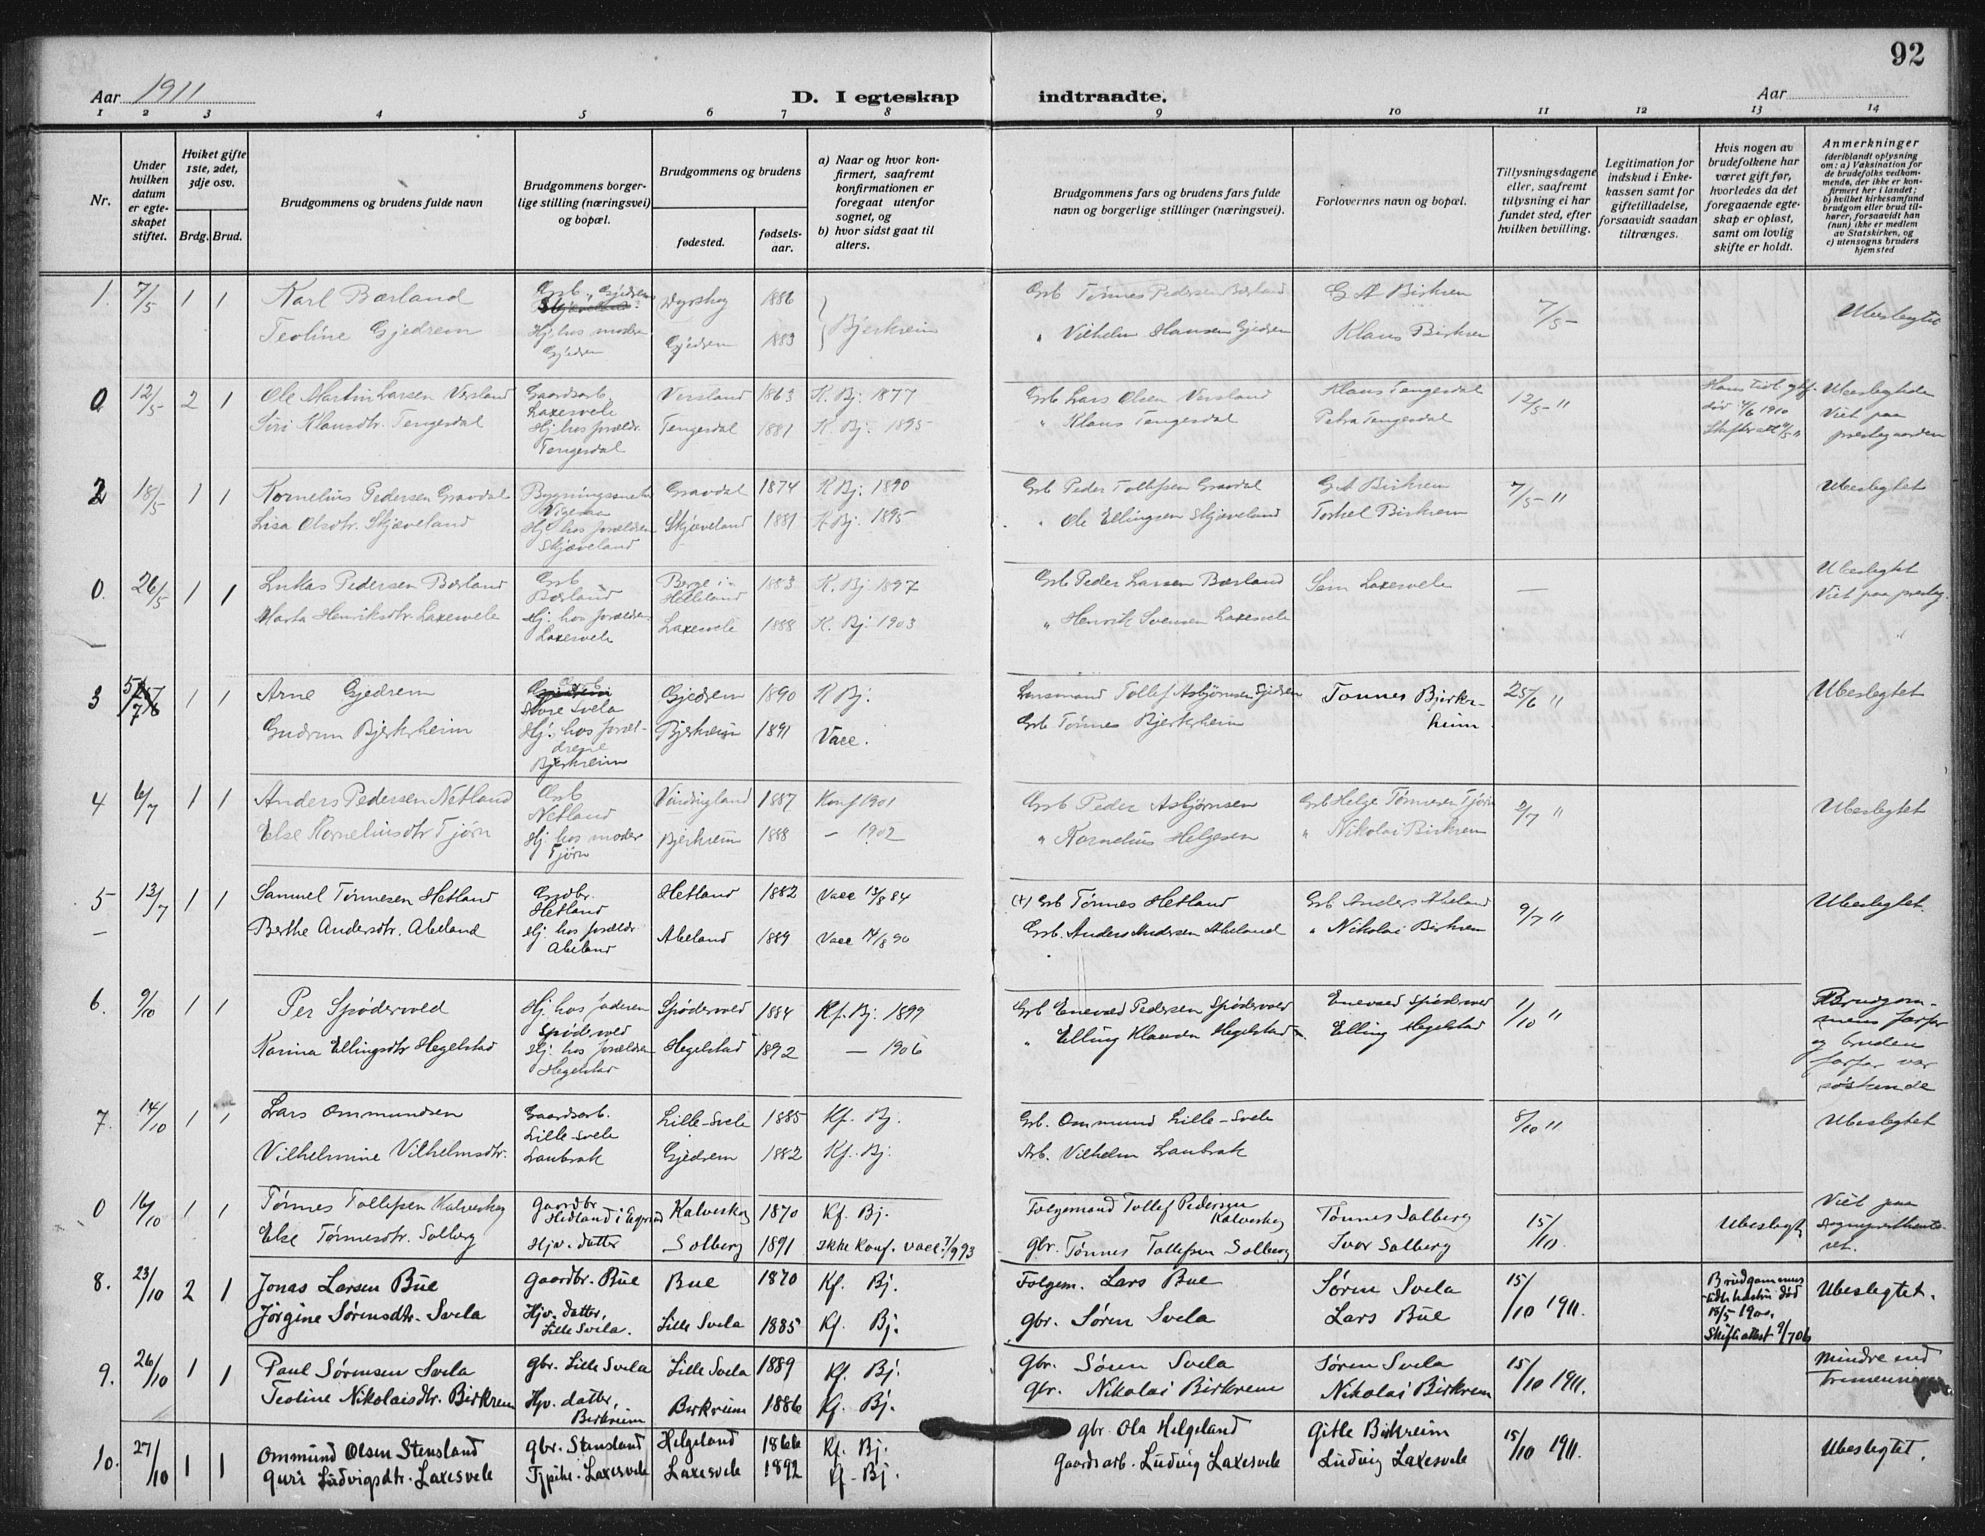 92
Aar 1911
D. I egteskap indtraadte.
Aar
1 2 3 4 5 6 7 8 9 10 11 12 13 14
Nr.
Under hvilken datum er egteskapet stiftet.
Hviket gifte 1ste, 2det, 3dje osv.
Brdg. Brud.
Brudgommens og brudens fulde navn
Brudgommens borgerlige stilling (næringsvei) og bopæl.
Brudgommens og brudens
fødested.
fødselsaar.
a) Naar og hvor konfirmert, saafremt konfirmationen er foregaat utenfor sognet, og
b) hvor sidst gaat til alters.
Brudgommens fars og brudens fars fulde navn og borgerlige stillinger (næringsvei).
Forlovernes navn og bopæl.
Tillysningsdagene eller, saafremt tillysning ei har fundet sted, efter hvilken bevilling.
Legitimation for indskud i Enkekassen samt for giftetilladelse, forsaavidt saadan tiltrænges.
Hvis nogen av brudefolkene har været gift før, hvorledes da det foregaaende egteskap er opløst, samt om lovlig skifte er holdt.
Anmerkninger
(deriblandt oplysning om: a) Vaksination for de brudefolks vedkommende, der ikke er konfirmert her i landet; b) hvilket kirkesamfund brudgom eller brud tilhører, forsaavidt han (hun) ikke er medlem av Statskirken, og c) utensogns bruders hjemsted
1. 7/5 1 1 Karl Bærland Grb. Gjedrem 1886 Grb Tønnes Pedersen Bærland G A Birkrem 7/5 Ubeslegtet
Teoline Gjedrem Hj. hos moder Gjedrem Gjedrem 1883 Bjerkreim " Vilhelm Hansen Gjedrem Klaus Birkrem
0 12/5 2 1 Ole Martin Larsen Versland Gaardsarb. Laxesvele Versland 1863 K. Bj. 1877 Grb Lars Olsen Versland Klaus Tengesdal 12/5 " Ubeslegtede
Siri Klausdtr. Tengesdal Hj. hos forældr. Tengesdal Tengesdal 1881 K. Bj. 1895 " Klaus Tengesdal Petra Tengesdal Viet paa prestegaarden
2 18/5 1 1 Kornelius Pedersen Gravdal Gravdal 1874 K Bj. 1890 Grb Peder Tollefsen Gravdal G A Birkrem 7/5 " Ubeslegtet
Lisa Olsdtr. Skjæveland Hj. hos forældren Skjæveland Skjæveland 1881 K. Bj. 1895 " Ole Ellingsen Skjæveland Torkel Birkrem
0. 26/5 1 1 Lukas Pedersen Bærland Grb Bærland Berge i Helleland 1883 K. Bj. 1897 Grb Peder Larsen Bærland Sem Laxesvele — Ubeslegtet
Marta Henriksdtr. Laxesvele Hj. hos forældre Laxesvele Laxesvele 1888 K. Bj. 1903 " Henrik Svensen Laxesvele Viet paa presteg.
3 5/7 1 1 Arne Gjedrem Store Svela Gjedrem 1890 K Bj. Lensmand Tollef Asbjørnsen Gjedrem Tønnes Bjerkrheim 25/6 " Ubeslegtet
Gudrun Bjerkrheim Hj. hos forældrene Bjerkreim Bjerkreim 1891 Vacc. Grb Tønnes Bjerkrheim
4 6/7 1 1 Anders Pedersen Netland Grb Netland 1887 Konf 1901 Grb Peder Asbjørnsen Grb Helge Tønnesen Tjørn 2/7 " Ubeslegtet
Else Kornelinsdtr Tjørn Hj. hos moder Tjørn Bjerkreim 1888 — 1902 " Kornelius Helgesen " Nikolai Birkrem
5 13/7 1 1 Samuel Tønnesen Hetland Grdbr. Hetland Hetland 1882 Vacc 13/8 84 (+) Grb Tønnes Hetland Grb Anders Abeland 9/7 " Ubeslegtet.
Berthe Andersdtr. Abeland Hj. hos forældr Abeland Abeland 1889 Vacc 14/8 90 Grb. Anders Andersen Abeland " Nikolai Birkrem
6. 9/10 1 1 Per Spødervold Hj. hos faderen Spødervold 1884 Kf. Bj. 1899 Grb Enevald Pedersen Spødervold Enevald Spødervold 1/10 " Brudgommens farfar
Karina Ellingsdtr Hegelstad Hj. hos forældre Hegelstad Hegelstad 1892 — 1906 " Elling Klausen Hegelstad Elling Hegelstad og brudens farfar var søskende
7. 14/10 1 1 Lars Ommundsen Gaardsarb. Lille-Svele Lille-Svele 1885 Kf. Bj. Grb. Ommund Lille-Svele 8/10 " Ubeslegtet
Vilhelmine Vilhelmsdtr. Laubrak Gjedrem 1882 Kf. Bj. Arb. Vilhelm Laubrak
0 16/10 1 1 Tønnes Tollefsen Kalveskog Gaardbr Kalveskog 1870 Kf. Bj. Folgemand Tollef Pedersen Kalveskog Tønnes Solberg 15/10. Ubeslegt. Viet paa
Else Tønnesdtr. Solberg Hjv. datter Solberg 1891 ikke Konf. vacc. 7/9 93 gbr. Tønnes Tollefsen Solberg Ivar Solberg
8. 23/10 2 1 Jonas Larsen Bue gaardbr. Bue Bue 1870 Kf. Bj. Folgem. Lars Bue Søren Svela 15/10 1911. Brudgommens død 18/5 1900. Skifteattest 9/7 06 Ubeslegtet.
Jørgine Sørensdtr. Svela Hjv. datter, Lille Svela. Lille Svela 1885 Kf. Bj. gbr. Søren Svela Lars Bue
9. 26/10 1 1 Paul Sørensen Svela gbr. Lille Svela Lille Svela 1889 Kf. Bj. gbr. Søren Svela Søren Svela 15/10 1911. Mindre end
Teoline Nikolaisdtr. Birkrem Hjv. datter, Birkreim Birkreim 1886 Kf. Bj. gbr. Nikolai Birkrem Nikolai Birkrem
10. 27/10 1 1 Ommund Olsen Stensland gbr. Stensland Helgeland 1866 Kf. Bj. gbr. Ola Helgeland Gitle Birkreim 15/10 1911. Ubeslegtet.
Guri Ludvigsdtr. Laxesvele Tjpike. Laxesvele Laxesvele 1892 Kf. Bj. Gaardsarb. Ludvig Laxesvele Ludvig Laxesvele